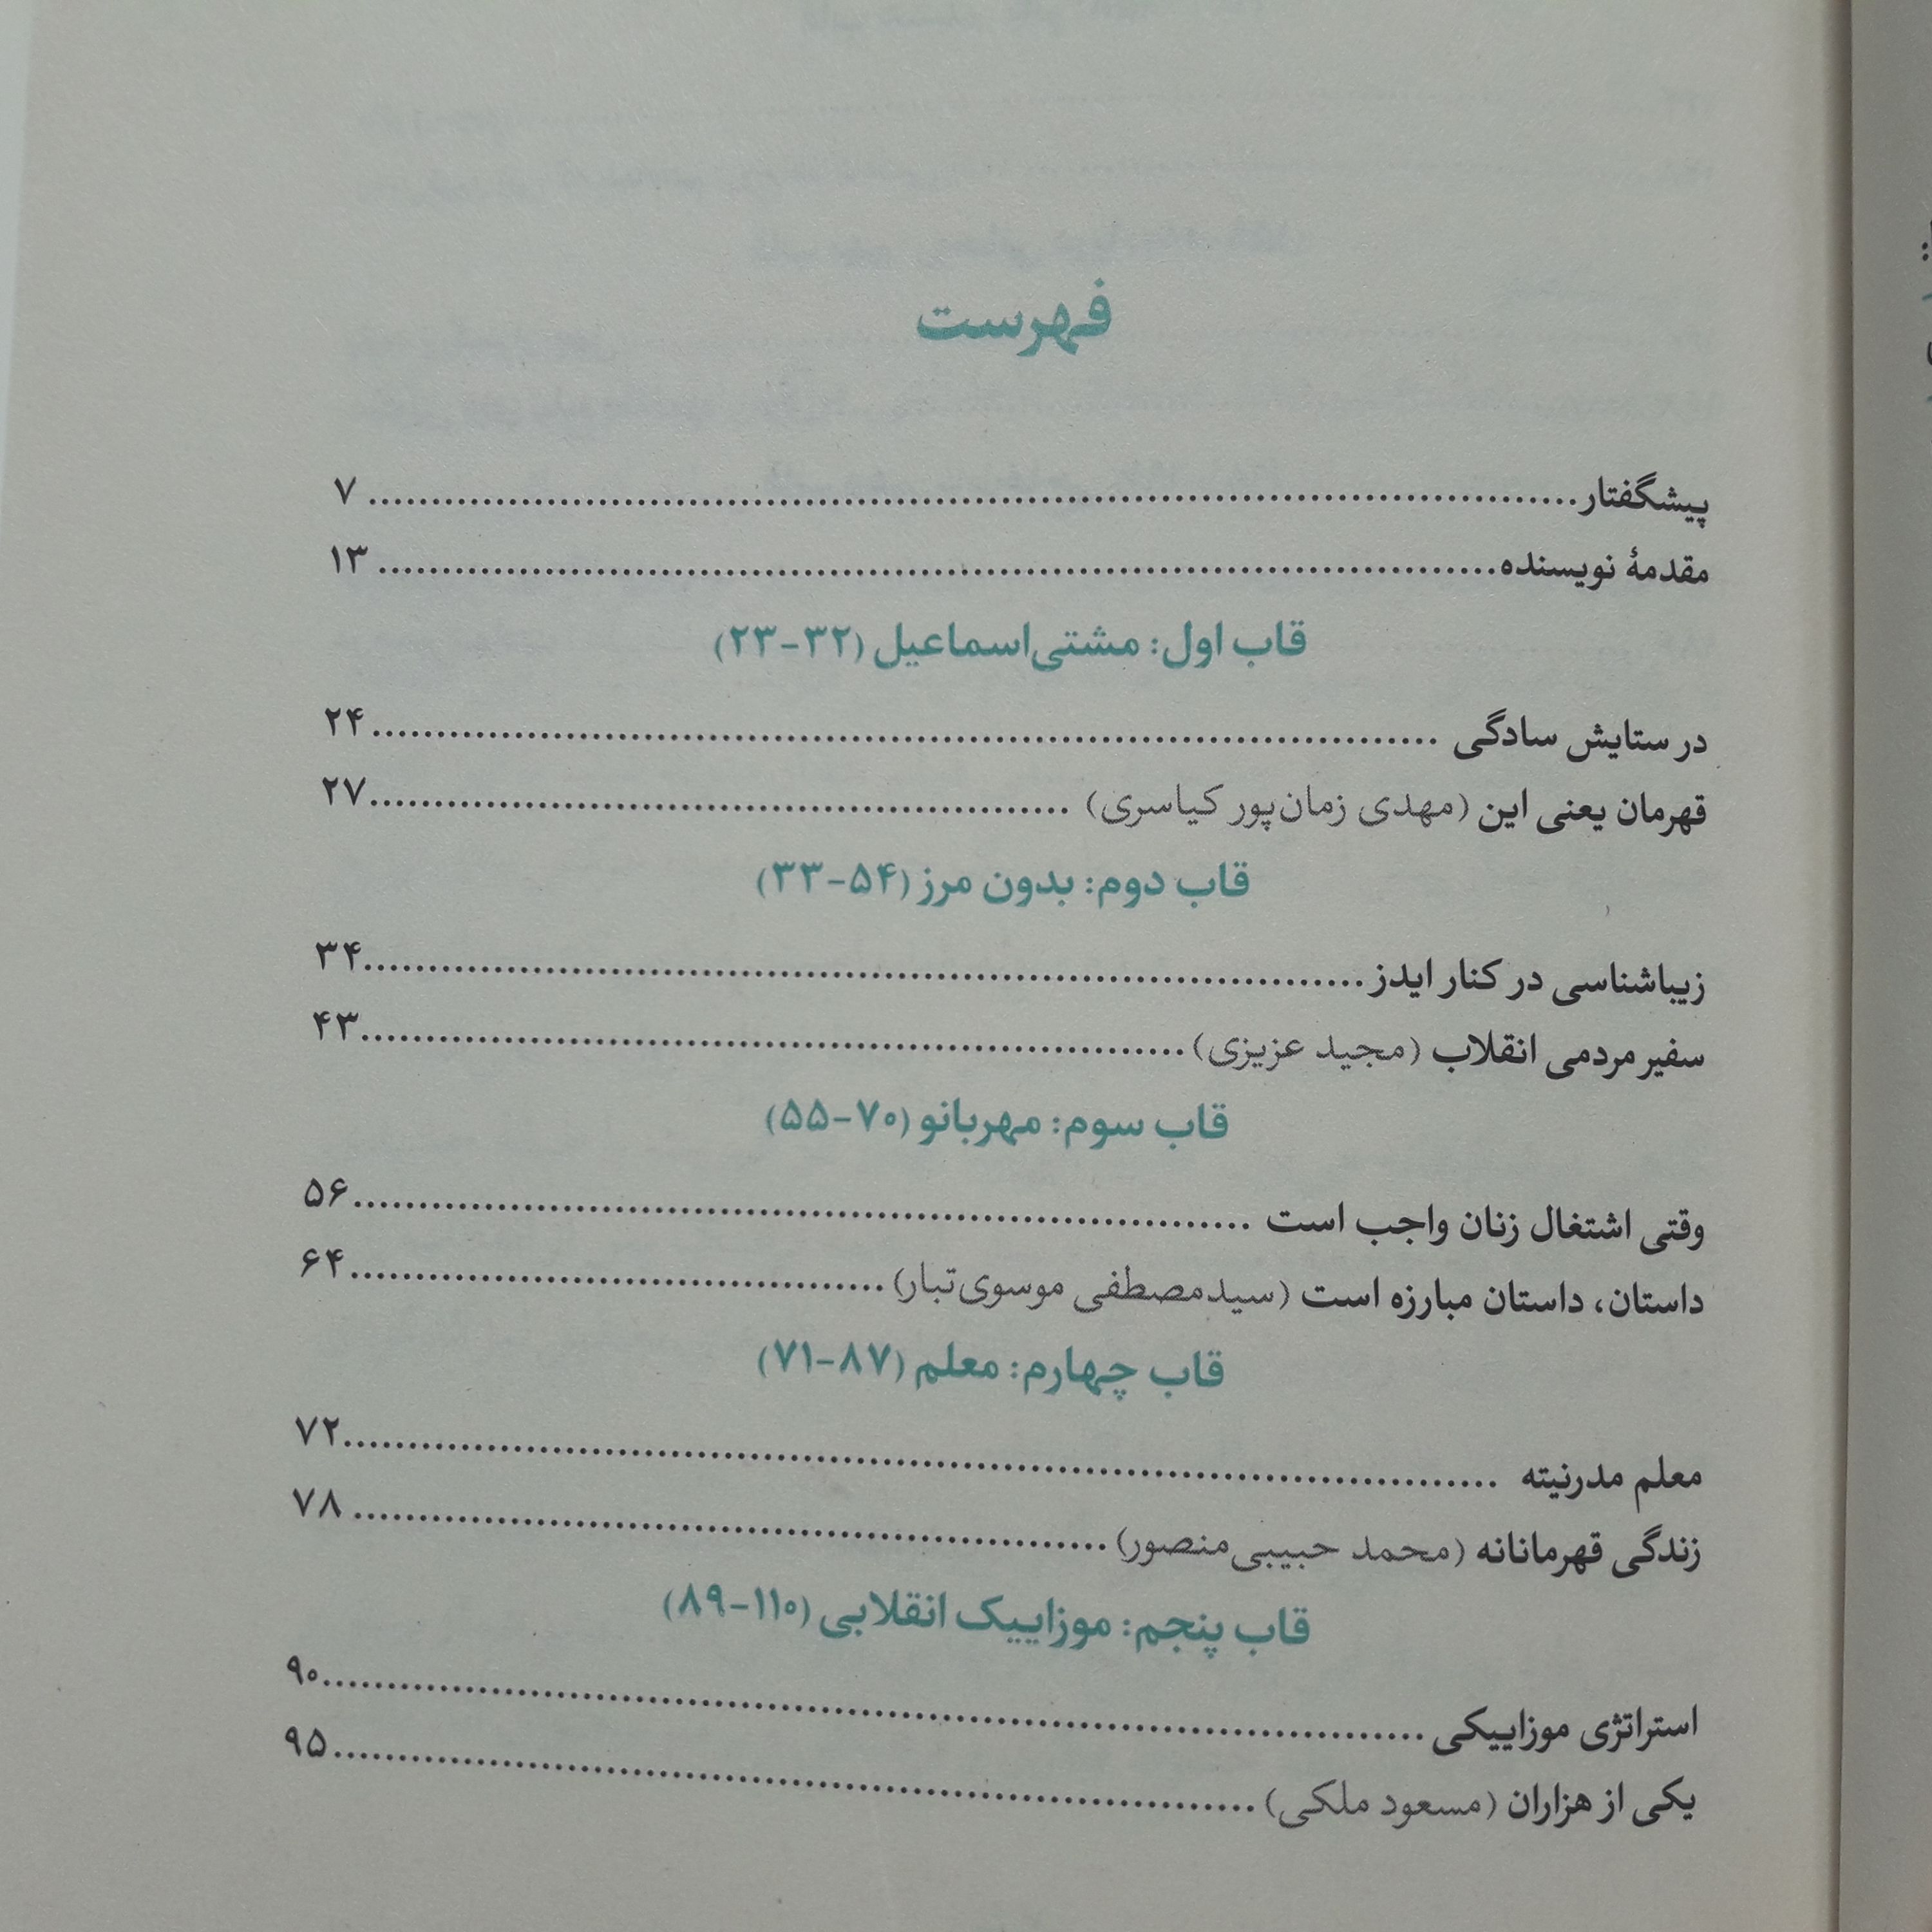 فهرست
پیشگفتار........................................ ۷
مقدمۀ نویسنده........................................ ۱۳
قاب اول: مشتی‌اسماعیل (۳۲-۲۳)
در ستایش سادگی ........................................ ۲۴
قهرمان یعنی این (مهدی زمان‌پور کیاسری) ........................................ ۲۷
قاب دوم: بدون مرز (۵۴-۳۳)
زیباشناسی در کنار ایدز........................................ ۳۴
سفیر مردمی انقلاب (مجید عزیزی)........................................ ۴۳
قاب سوم: مهربانو (۷۰-۵۵)
وقتی اشتغال زنان واجب است ........................................ ۵۶
داستان، داستان مبارزه است (سیدمصطفی موسوی‌تبار)........................................ ۶۴
قاب چهارم: معلم (۸۷-۷۱)
معلم مدرنیته ........................................ ۷۲
زندگی قهرمانانه (محمد حبیبی‌منصور)........................................ ۷۸
قاب پنجم: موزاییک انقلابی (۱۱۰-۸۹)
استراتژی موزاییکی........................................ ۹۰
یکی از هزاران (مسعود ملکی)........................................ ۹۵